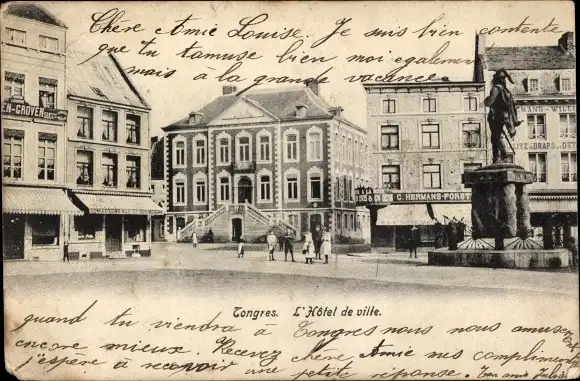 Chère Amie Louise. Je suis bien contente
que tu tamuse bien moi egalement
mais a la grande vacance
EN-GROVEN
SUCC
C. HERMANS-FORST
MANS-WILL
TE DRAPS
Tongres. L'Hôtel de ville.
quand tu viendra à Tongres nous nous amuserons
encore mieux. Recevez chère Amie mes compliments
j'espère à recevoir une petite réponse. Ton amie Julia